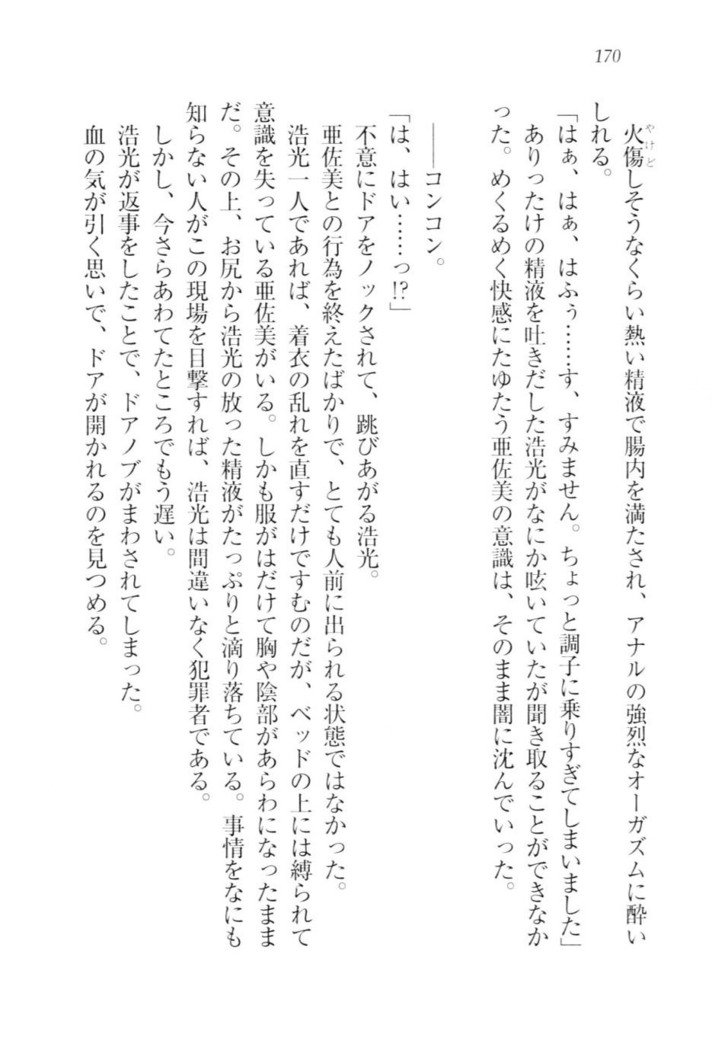 170
火傷しそうなくらい熱い精液で腸内を満たされ、アナルの強烈なオーガズムに酔い
やけど
しれる。
「はぁ、はぁ、はふぅ……す、すみません。ちょっと調子に乗りすぎてしまいました」
ありったけの精液を吐きだした浩光がなにか呟いていたが聞き取ることができなか
った。めくるめく快感にたゆたう亜佐美の意識は、そのまま闇に沈んでいった。
――コンコン。
「は、はい……っ!?」
不意にドアをノックされて、跳びあがる浩光。
亜佐美との行為を終えたばかりで、とても人前に出られる状態ではなかった。
浩光一人であれば、着衣の乱れを直すだけですむのだが、ベッドの上には縛られて
意識を失っている亜佐美がいる。しかも服がはだけて胸や陰部があらわになったまま
だ。その上、お尻から浩光の放った精液がたっぷりと滴り落ちている。事情をなにも
知らない人がこの現場を目撃すれば、浩光は間違いなく犯罪者である。
しかし、今さらあわてたところでもう遅い。
浩光が返事をしたことで、ドアノブがまわされてしまった。
血の気が引く思いで、ドアが開かれるのを見つめる。